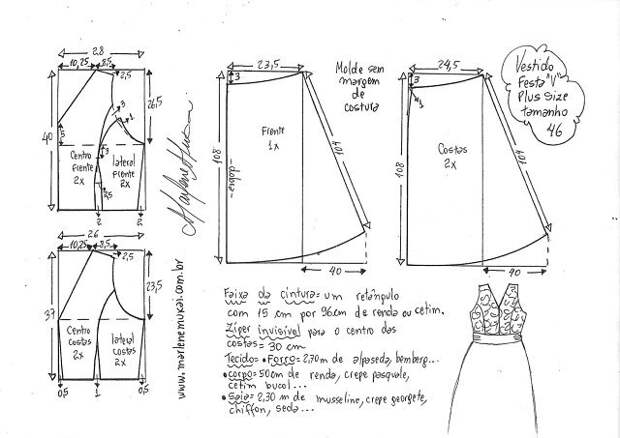 2,8
10,25
8,5
2,5
26,5
40
5
3
1
3
Centro
frente
2x
lateral
frente
2x
2,5
2
2
26
10,25
8,5
2,5
23,5
37
Centro
costas
2x
lateral
costas
2x
0,5
1
0,5
Marlene Mukai
www.marlenemukai.com.br
23,5
3
Frente
1x
dobra
108
108
40
Molde sem
margem
de
costura
24,5
3
1
Costas
2x
108
108
40
Vestido
Festa "V"
Plus Size
tamanho
46
Faixa da cintura= um retângulo
com 15 cm por 96cm de renda ou cetim.
Zíper invisível para o centro das
costas= 30 cm
Tecido= • Forro= 2,70m de alpaseda, bemberg...
• corpo= 50cm de renda, crepe pasquale,
cetim bucol...
• saia= 2,30 m de musseline, crepe georgete,
chiffon, seda...